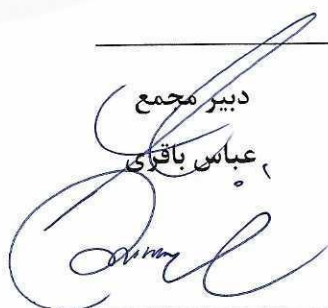 دبیر مجمع
عباس باقری